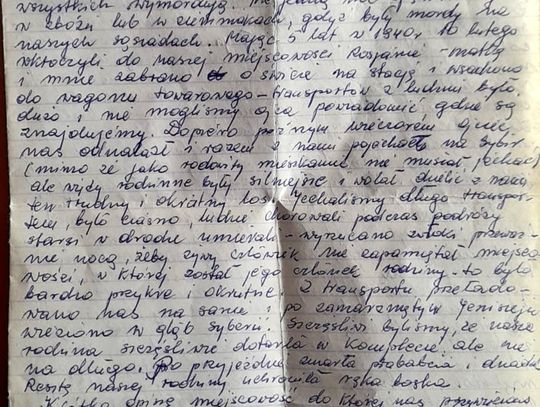 wszystkich wymordują.
w zbożu lub w ziemniakach, gdyż były mordy na
naszych sąsiadach. Mając 5 lat w 1940r. 10 lutego
wkroczyli do naszej miejscowości Rosjanie - matkę
i mnie zabrano o świcie na stację i wsadzono
do wagonu towarowego - transportów z ludźmi było
dużo i nie mogliśmy ojca powiadomić gdzie się
znajdujemy. Dopiero późnym wieczorem ojciec
nas odnalazł i razem z nami pojechał na Sybir
(mimo że jako rodowity mieszkaniec nie musiał jechać)
ale więzy rodzinne były silniejsze i wolał dzielić z nami
ten trudny i okrutny los. Jechaliśmy długo transpor-
tem, było ciasno, ludzie chorowali podczas podróży
starsi w drodze umierali - wyrzucano zwłoki przeważ-
nie nocą, żeby żywy człowiek nie zapamiętał miejsco-
wości, w której został jego członek rodziny - to było
bardzo przykre i okrutne. Z transportu przełado-
wano nas na sanie i po zamarzniętym Jenisieju
wieziono w głąb Syberii. Szczęśliwi byliśmy, że nasza
rodzina szczęśliwie dotarła w komplecie ale nie
na długo. Po przyjeździe zmarła prababcia i dziadek
Resztę naszej rodziny uchroniła ręka boska.
Krótko opiszę miejscowość do której nas przywieziono